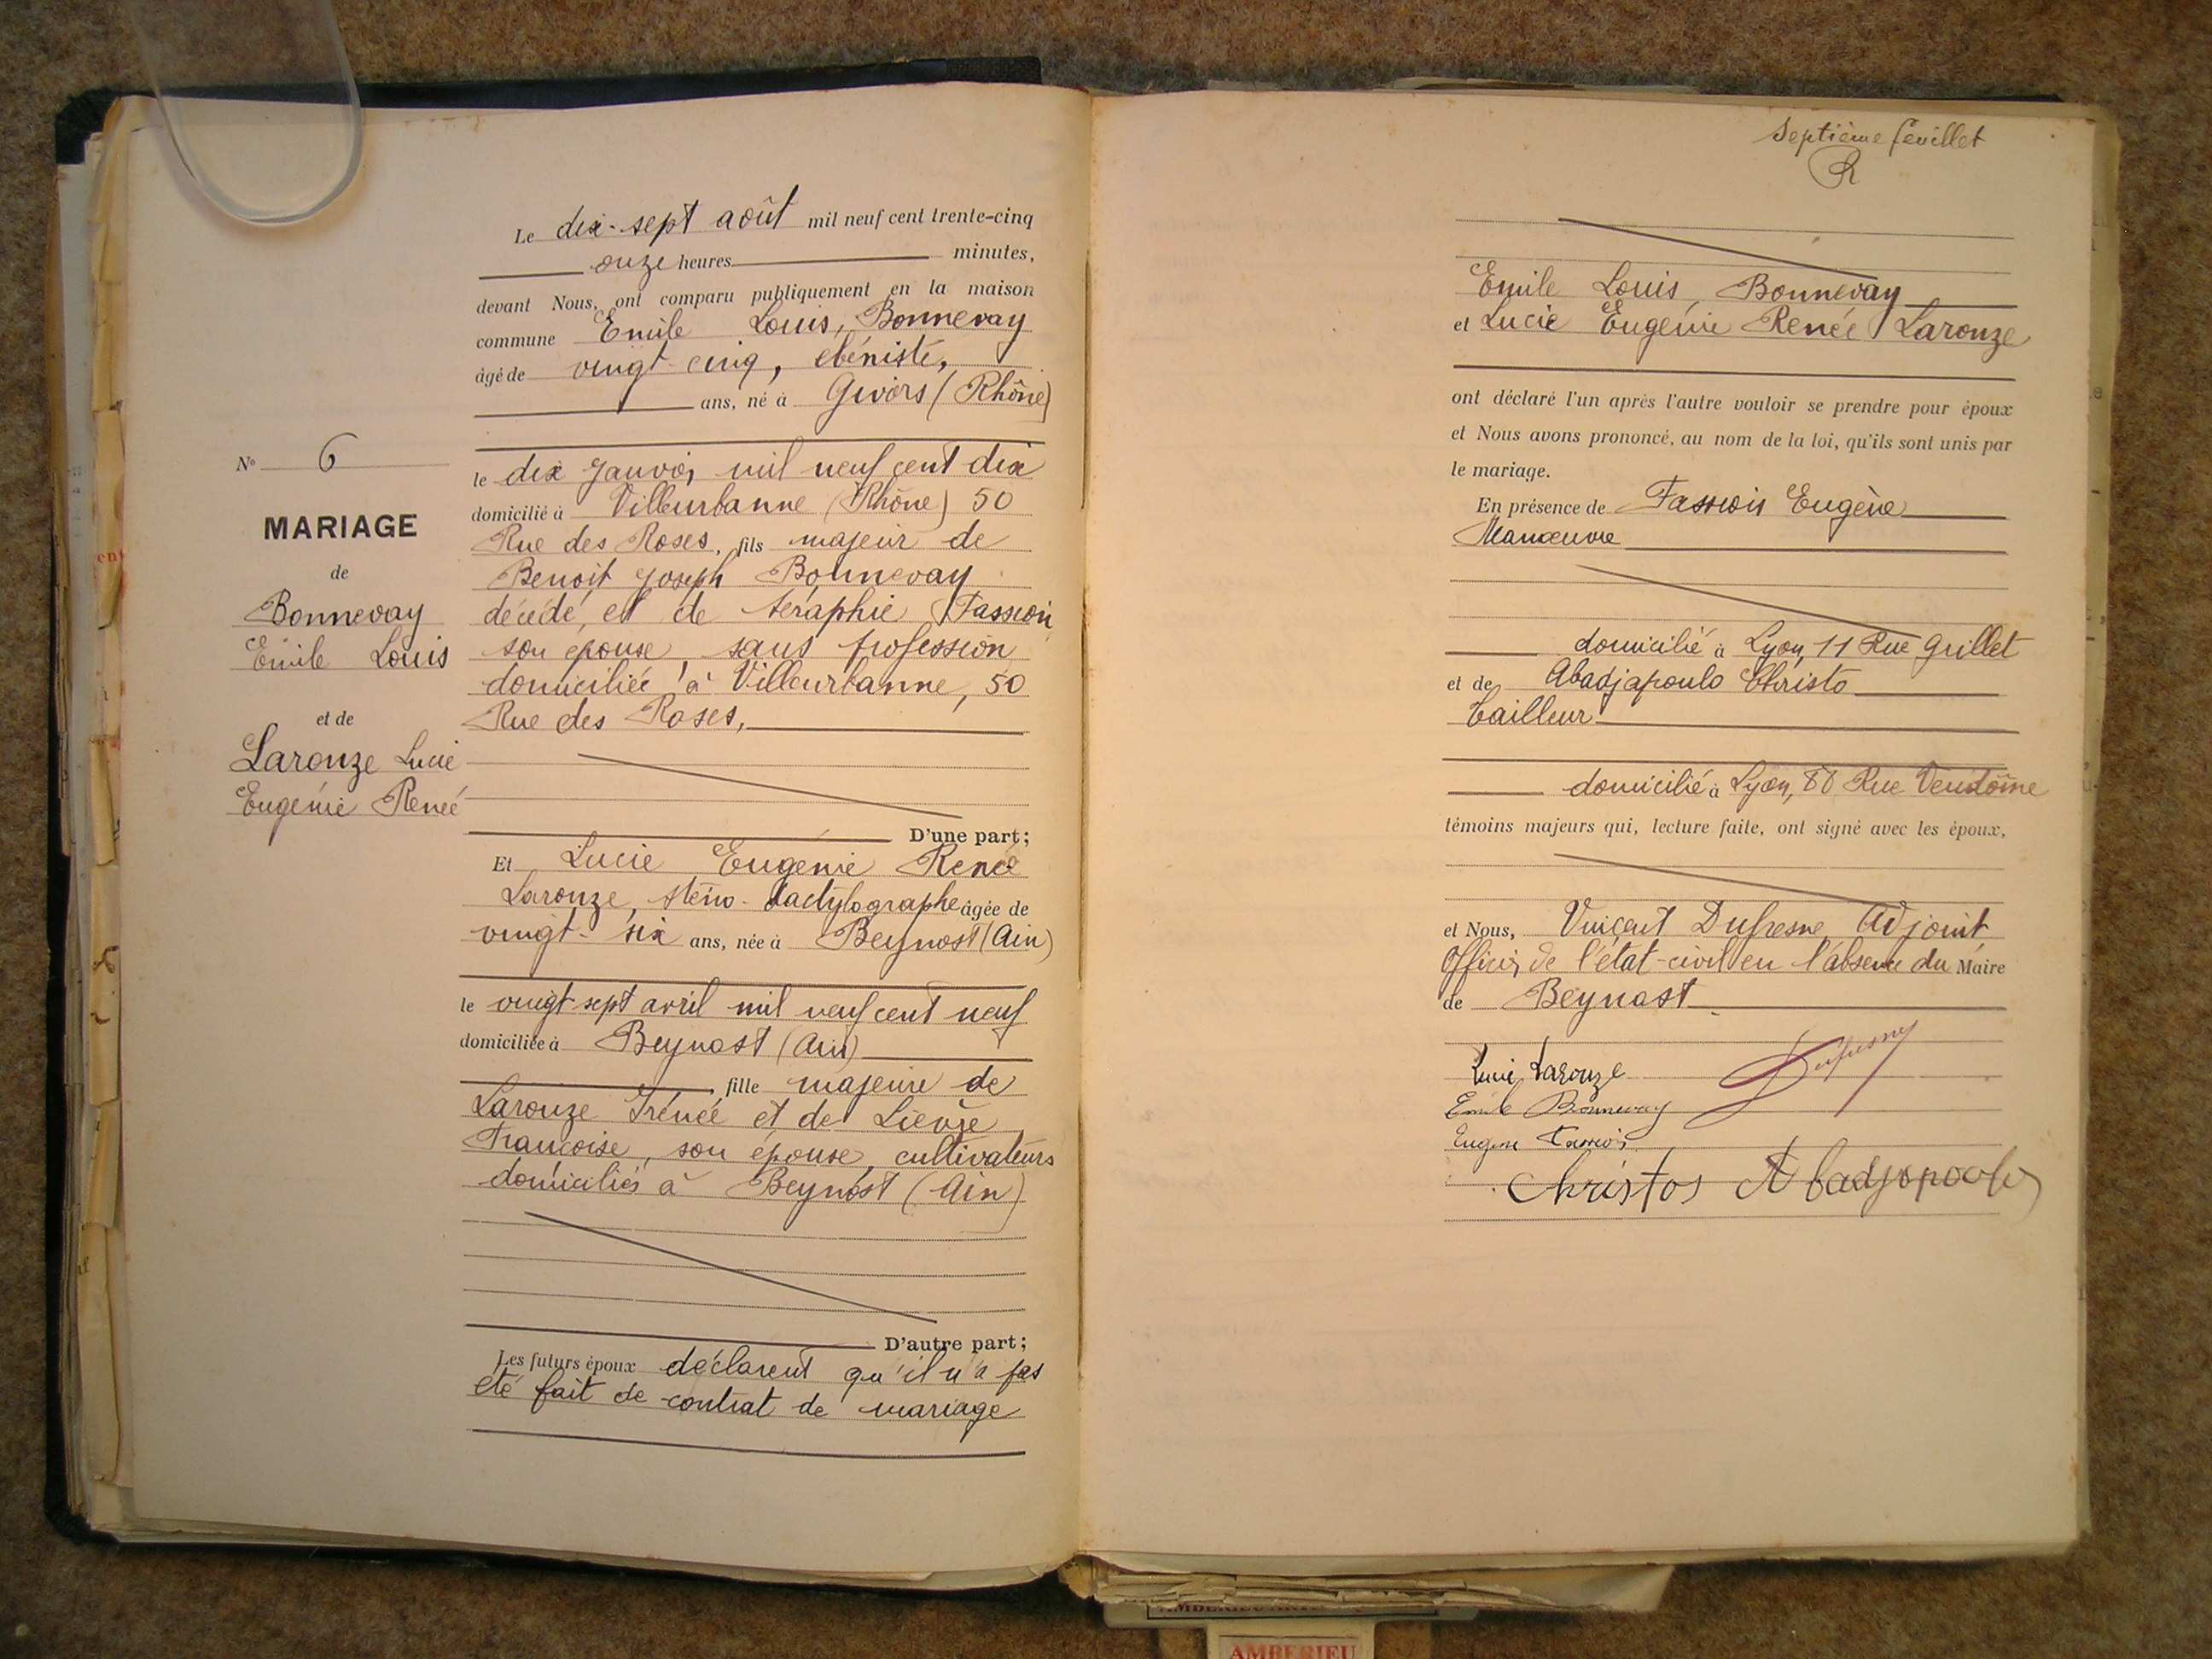 Le dix-sept août mil neuf cent trente-cinq
onze heures minutes,
devant Nous, ont comparu publiquement en la maison
commune Emile Louis, Bonnevay
âgé de vingt-cinq, ebéniste,
ans, né à Givors (Rhône)
le dix janvier mil neuf cent dix
domicilié à Villeurbanne (Rhône) 50
Rue des Roses, fils majeur de
Benoit Joseph Bonnevay
décédé, et de Séraphie
son épouse, sans profession
domiciliée à Villeurbanne, 50
Rue des Roses,
D'une part;
Et Lucie Eugénie Renée
Larouze, sténo-dactylographe âgée de
vingt-six ans, née à Beynost (Ain)
le vingt-sept avril mil neuf cent neuf
domiciliée à Beynost (Ain)
fille majeure de
Larouze Irénée et de Lievre
Françoise, son épouse, cultivateurs
domiciliés à Beynost (Ain)
D'autre part;
Les futurs époux déclarent qu'il n'a pas
été fait de contrat de mariage
N° 6
MARIAGE
de
Bonnevay
Emile Louis
et de
Larouze Lucie
Eugénie Renée
Septième feuillet
Emile Louis, Bonnevay
et Lucie Eugénie Renée Larouze
ont déclaré l'un après l'autre vouloir se prendre pour époux
et Nous avons prononcé, au nom de la loi, qu'ils sont unis par
le mariage.
En présence de Eugène
Manœuvre
domicilié à Lyon, 11 Rue Grillet
et de Abadjapoulo Christo
tailleur
domicilié à Lyon, 80 Rue Vendôme
témoins majeurs qui, lecture faite, ont signé avec les époux,
et Nous, Vincent Dufresne, Adjoint
Officier de l'état-civil en l'absence du Maire
de Beynost
Lucie Larouze
Dufresne
Emile Bonnevay
Eugène
Christos Abadjopoulos
AMBERIEU